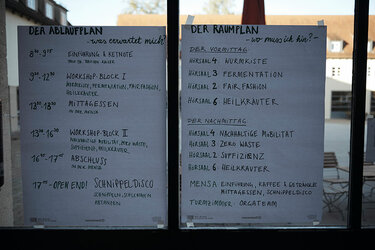 DER ABLAUFPLAN
-was erwartet mich?
8³⁰-9¹⁵ EINFÜHRUNG & KEYNOTE
9¹⁵-12¹⁵ WORKSHOP-BLOCK I
MOBILITÄT, FERMENTATION, FAIR FASHION,
HEILKRÄUTER
MITTAGESSEN
IN DER MENSA
WORKSHOP-BLOCK II
NACHHALTIGE MOBILITÄT, ZERO WASTE,
SUFFIZIENZ, HEILKRÄUTER
ABSCHLUSS
IN DER MENSA
OPEN END! SCHNIPPELDISCO
SCHNIPPELN, SCHLEMMEN
& TANZEN
DER RAUMPLAN
-wo muss ich hin?-
DER VORMITTAG
HÖRSAAL 4 WURMKISTE
HÖRSAAL 3 FERMENTATION
HÖRSAAL 2 FAIR FASHION
HÖRSAAL 6 HEILKRÄUTER
DER NACHMITTAG
HÖRSAAL 4 NACHHALTIGE MOBILITÄT
HÖRSAAL 3 ZERO WASTE
HÖRSAAL 2 SUFFIZIENZ
HÖRSAAL 6 HEILKRÄUTER
MENSA EINFÜHRUNG, KAFFEE & GETRÄNKE
MITTAGESSEN, SCHNIPPELDISCO
TURMZIMMER ORGATEAM